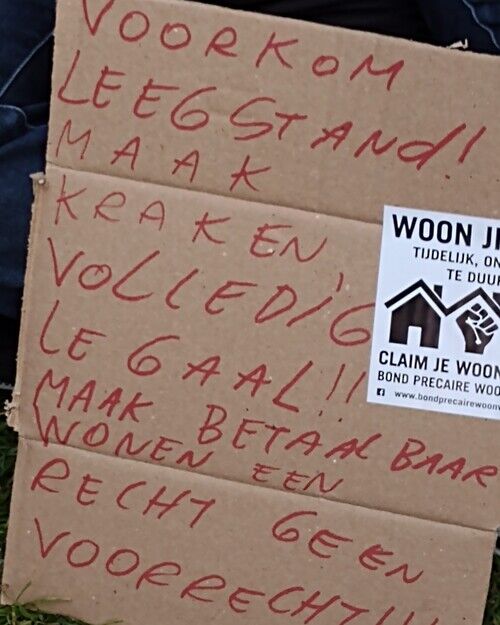 VOORKOM
LEEGSTAND!
MAAK
KRAKEN,
VOLLEDIG
LEGAAL!!
MAAK BETAALBAAR
WONEN EEN
RECHT GEEN
VOORRECHT!!!
WOON JE
TIJDELIJK, ON
TE DUUR
CLAIM JE WOON
BOND PRECAIRE WOO
www.bondprecairewoonv